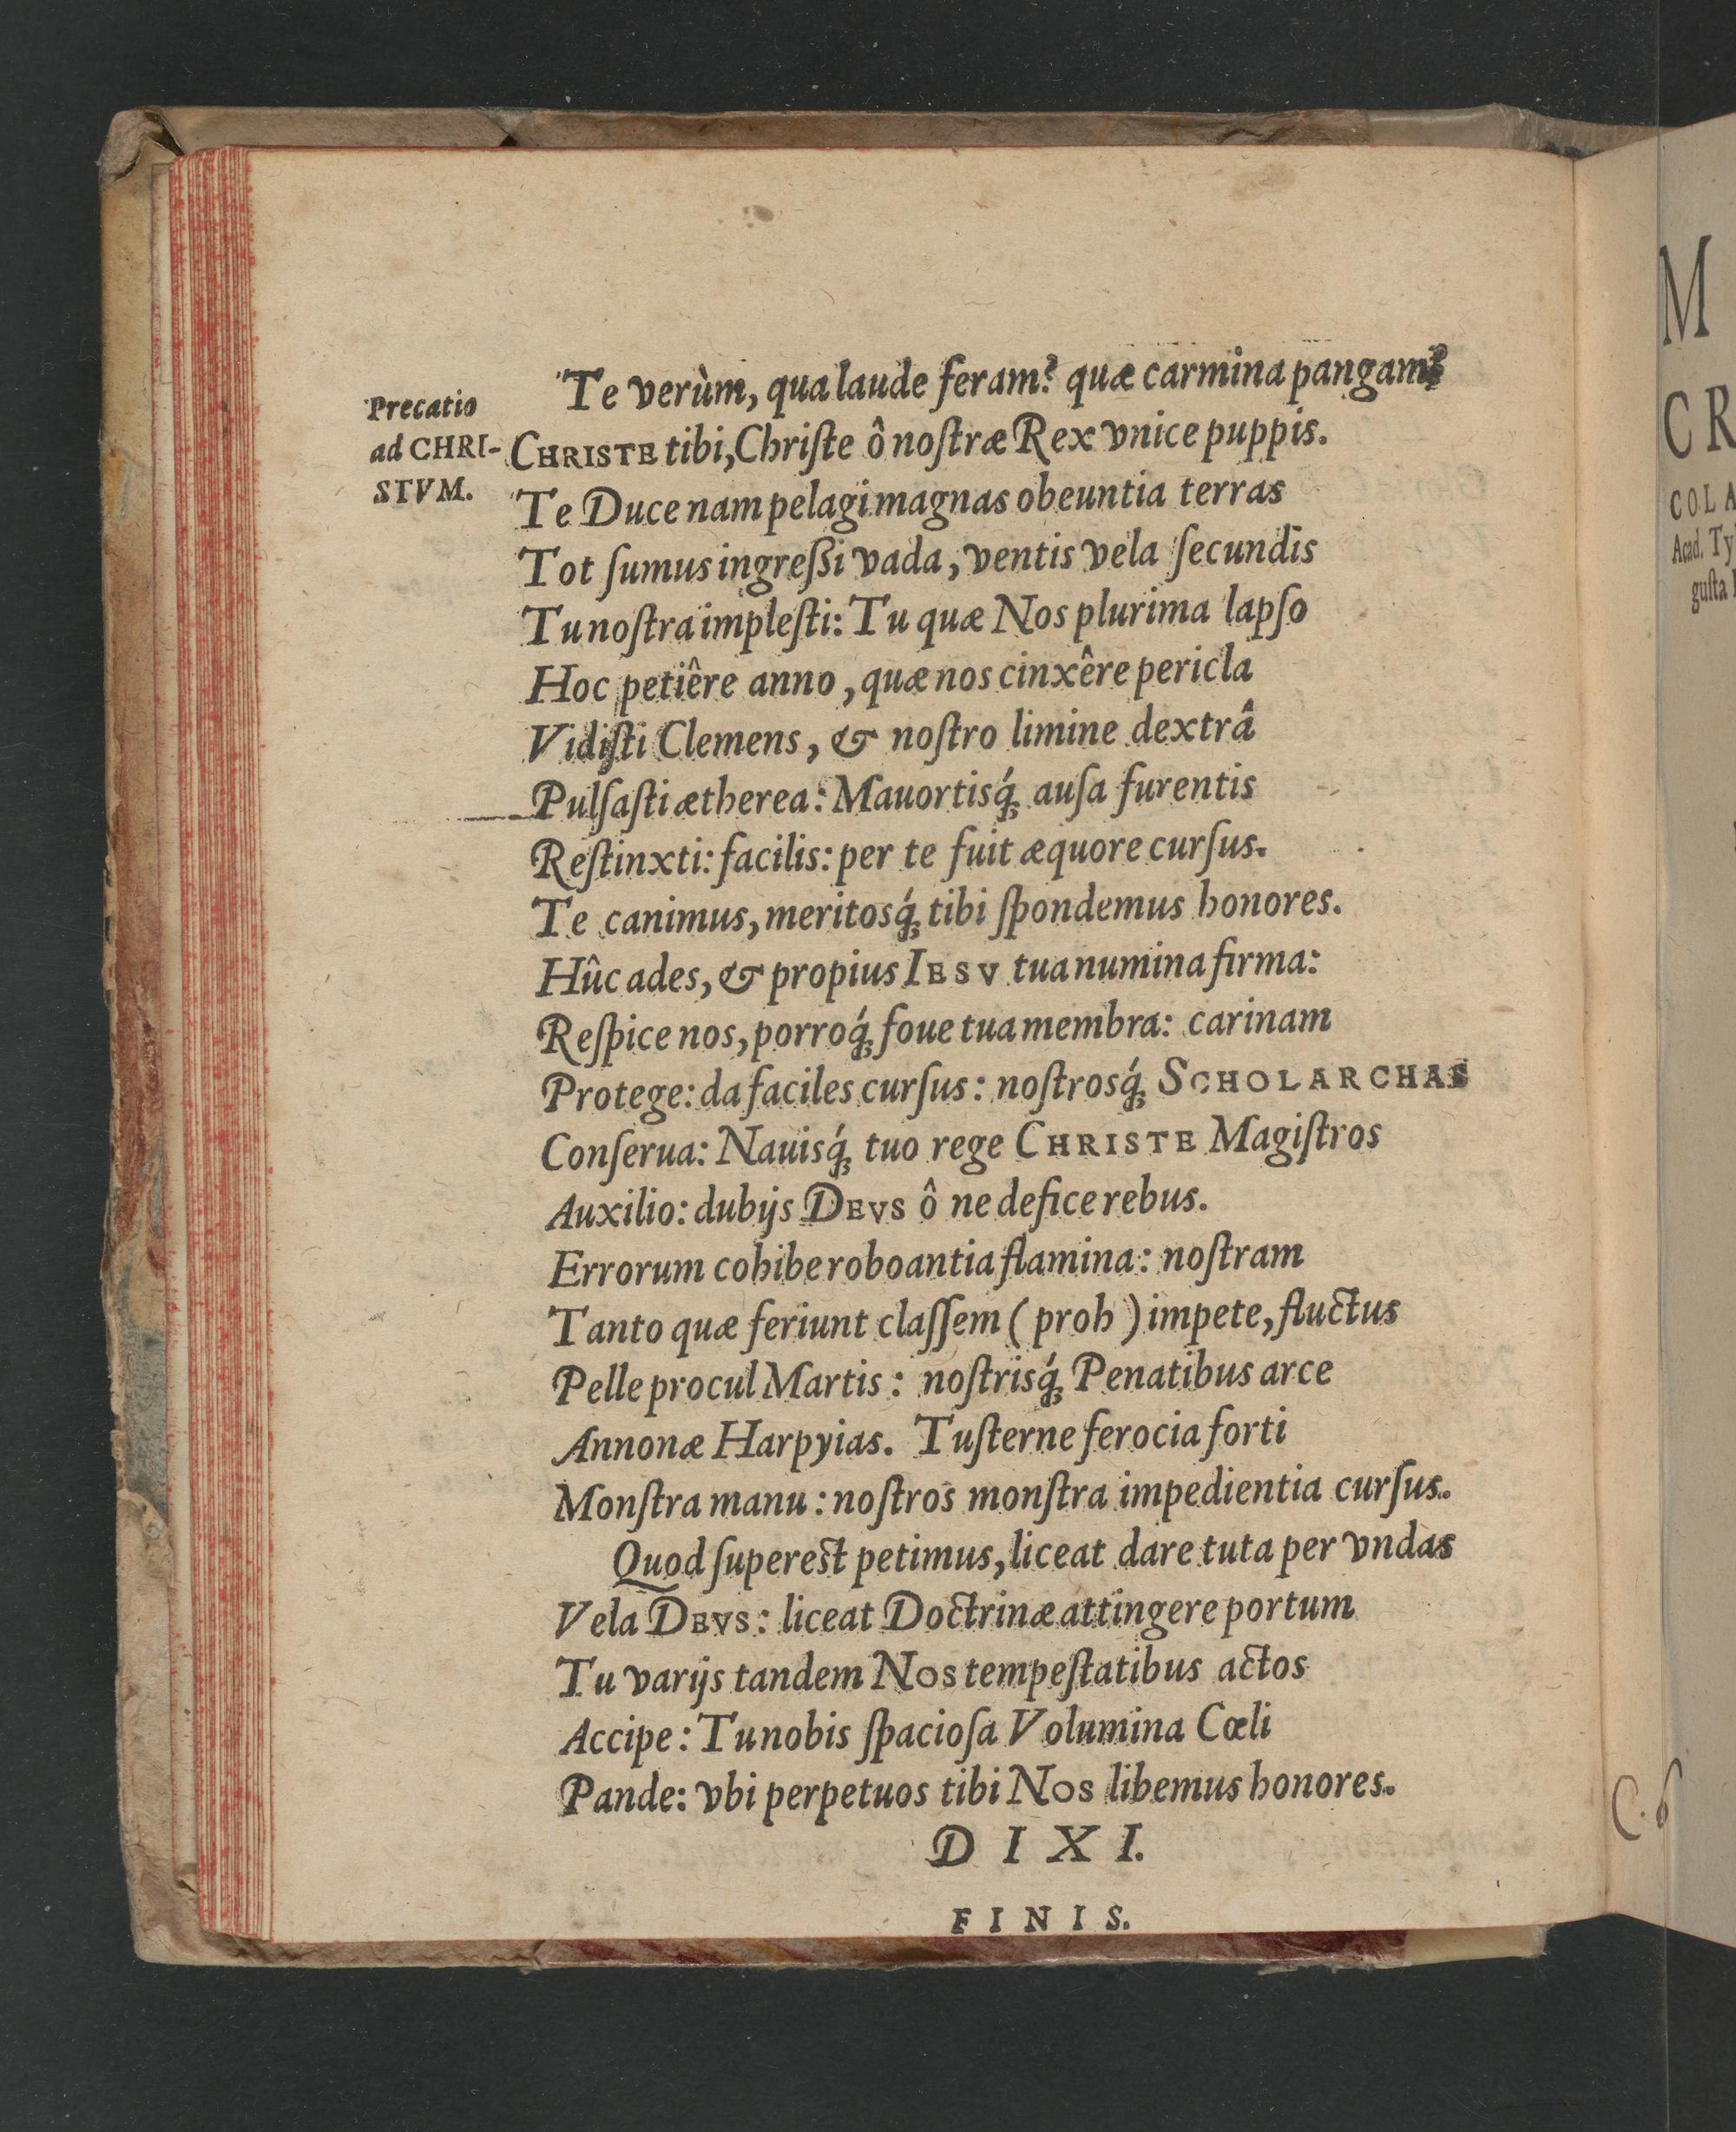 Precatio
ad CHRI-
STVM.
Te verùm, qua laude feram? quæ carmina pangam?
CHRISTE tibi, Chriſte ô noſtræ Rex vnice puppis.
Te Duce nam pelagi magnas obeuntia terras
Tot ſumus ingreßi vada, ventis vela ſecundis
Tu noſtra impleſti: Tu quæ Nos plurima lapſo
Hoc petiêre anno, quæ nos cinxêre pericla
Vidiſti Clemens, & noſtro limine dextrâ
Pulſaſti ætherea: Mauortisq́; auſa furentis
Reſtinxti: facilis: per te fuit æquore curſus.
Te canimus, meritosq́; tibi ſpondemus honores.
Hûc ades, & propius IESV tua numina firma:
Reſpice nos, porroq́; foue tua membra: carinam
Protege: da faciles curſus: noſtrosq́; SCHOLARCHAS
Conſerua: Nauisq́; tuo rege CHRISTE Magiſtros
Auxilio: dubijs DEVS ô ne defice rebus.
Errorum cohibe roboantia flamina: noſtram
Tanto quæ feriunt claſſem (proh) impete, fluctus
Pelle procul Martis: noſtrisq́; Penatibus arce
Annonæ Harpyias. Tu ſterne ferocia forti
Monſtra manu: noſtros monſtra impedientia curſus.
Quod ſupereſt petimus, liceat dare tuta per vndas
Vela DEVS: liceat Doctrinæ attingere portum
Tu varijs tandem Nos tempeſtatibus actos
Accipe: Tu nobis ſpacioſa Volumina Cœli
Pande: vbi perpetuos tibi Nos libemus honores.
DIXI.
FINIS.
M
CR
COLA
Acad. Ty
guſta
C. 6